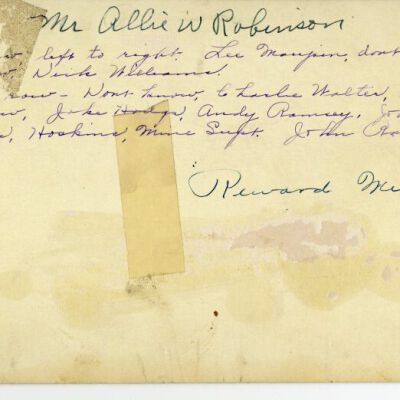 Mr Allie W Robinson
left to right. Lee Maupin, dont
Dick Williams.
row - Dont know, Charlie Walter,
Jake Hodge, Andy Ramsey,
Hoskins, Mine Supt. John
Reward